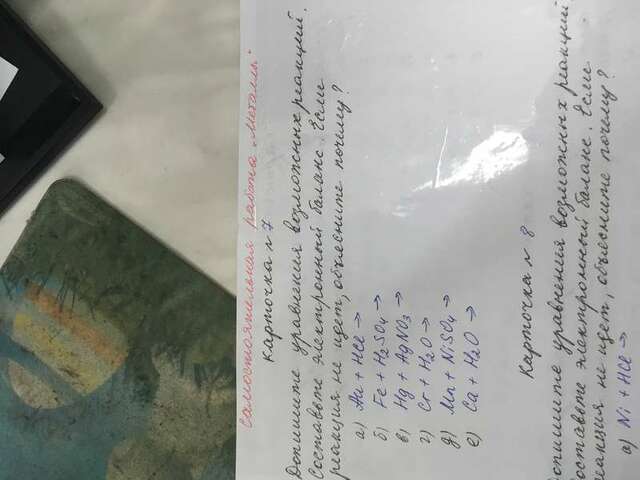 Самостоятельная работа „Металлы"
Карточка № 7
Допишите уравнения возможных реакций.
Составьте электронный баланс. Если
реакция не идет, объясните почему?
а) Au + HCl →
б) Fe + H₂SO₄ →
в) Hg + AgNO₃ →
г) Cr + H₂O →
д) Mn + NiSO₄ →
е) Ca + H₂O →
Карточка № 8
Допишите уравнения возможных реакций
Составьте электронный баланс. Если
реакция не идет, объясните почему?
а) Ni + HCl →